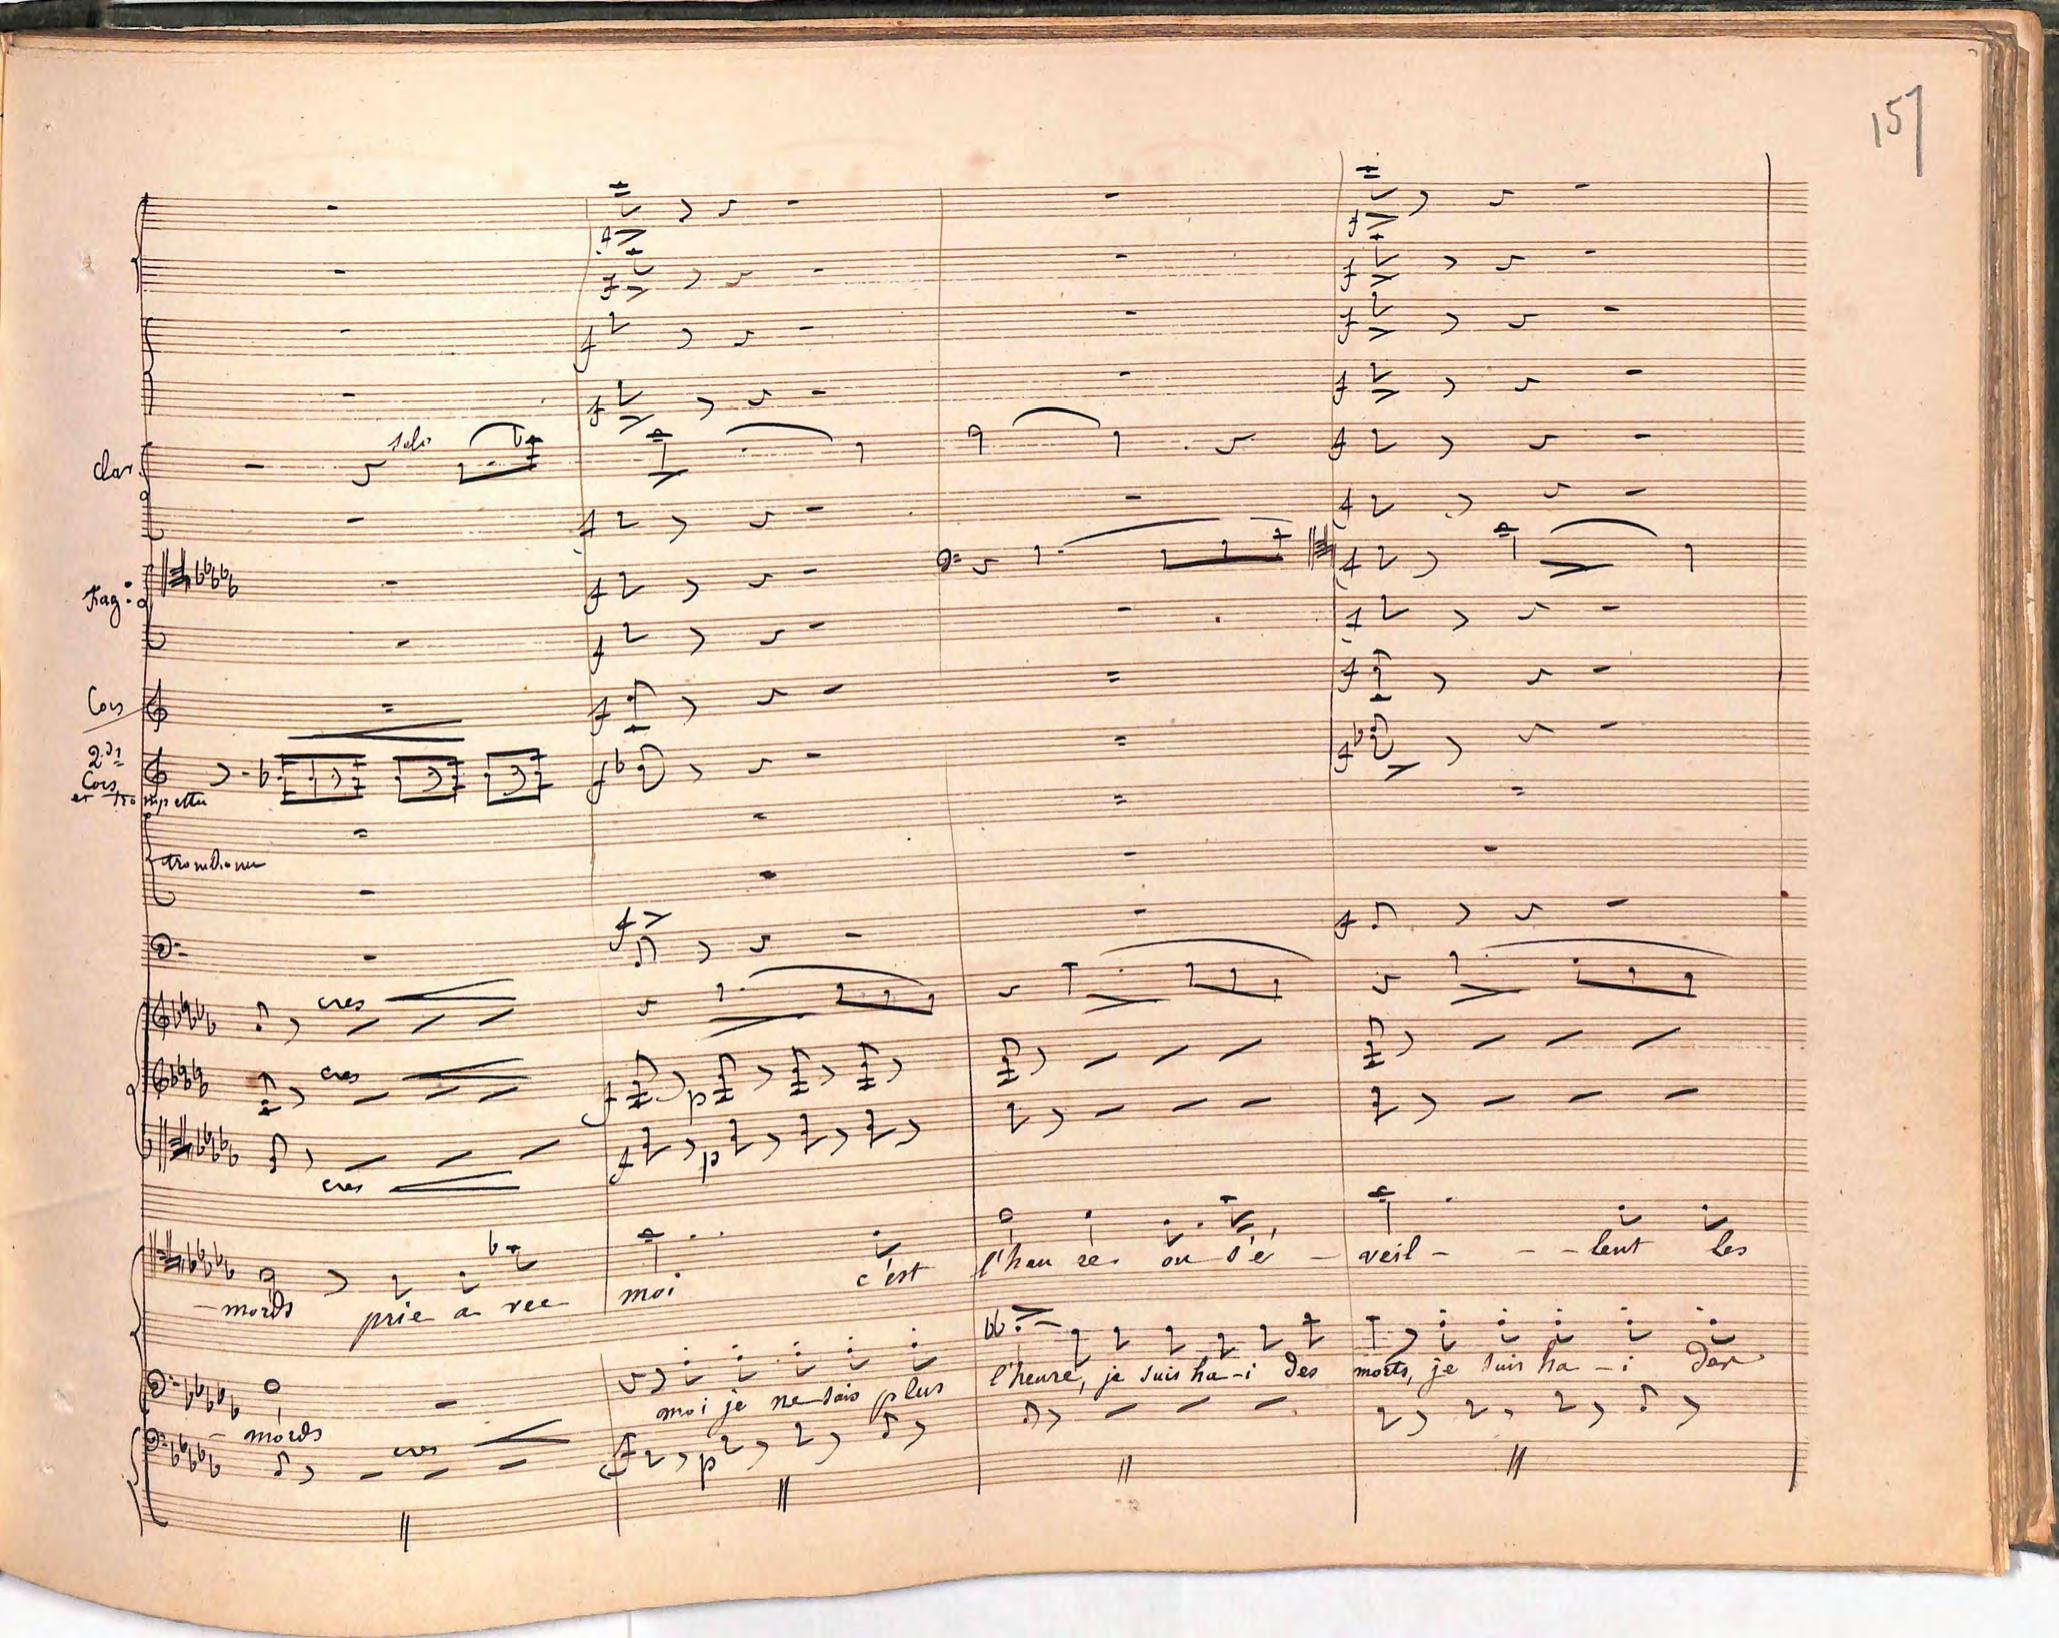 157
solo
Clar.
Fag:
Cors
2ds
Cors
et trompettes
trombones
cres
cres
cres
- mords prie a vec moi c'est l'heu re. ou s'é - veil - - - lent les
- mords moi je ne sais plus l'heure, je suis ha-i des morts, je suis ha - i
cres